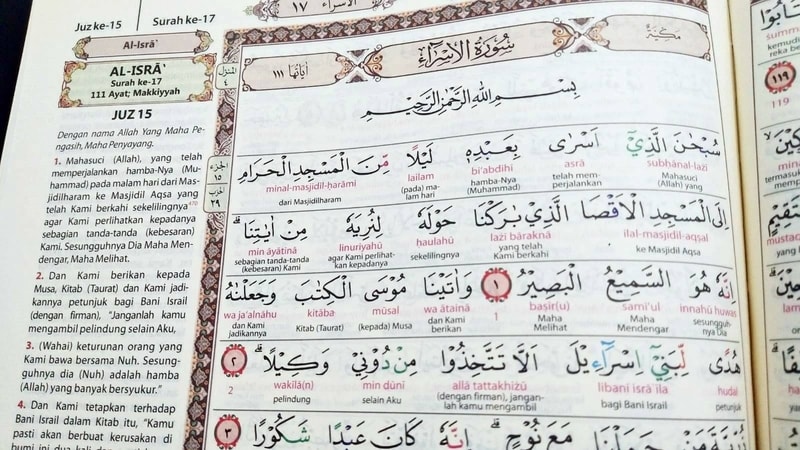 Juz ke-15 Surah ke-17
Al-Isrā`
AL-ISRĀ`
Surah ke-17
111 Ayat; Makkiyyah
JUZ 15
Dengan nama Allah Yang Maha Pe-
ngasih, Maha Penyayang.
1. Mahasuci (Allah), yang telah
memperjalankan hamba-Nya (Mu-
hammad) pada malam hari dari Mas-
jidilharam ke Masjidil Aqsa yang
telah Kami berkahi sekelilingnya⁴⁷⁰
agar Kami perlihatkan kepadanya
sebagian tanda-tanda (kebesaran)
Kami. Sesungguhnya Dia Maha Men-
dengar, Maha Melihat.
2. Dan Kami berikan kepada
Musa, Kitab (Taurat) dan Kami jadi-
kannya petunjuk bagi Bani Israil
(dengan firman), "Janganlah kamu
mengambil pelindung selain Aku,
3. (Wahai) keturunan orang yang
Kami bawa bersama Nuh. Sesung-
guhnya dia (Nuh) adalah hamba
(Allah) yang banyak bersyukur."
4. Dan Kami tetapkan terhadap
Bani Israil dalam Kitab itu, "Kamu
pasti akan berbuat kerusakan di
bumi ini dua kali dan
١٧ الاسراء
المنزل ٤
الجزء ١٥
الحزب ٢٩
مكية
سُوْرَةُ الْاِسْرَاءِ
اٰياتها ١١١
بِسْمِ اللّٰهِ الرَّحْمٰنِ الرَّحِيْمِ
سُبْحٰنَ الَّذِيْٓ اَسْرٰى بِعَبْدِهٖ لَيْلًا مِّنَ الْمَسْجِدِ الْحَرَامِ
subḥānal-lażī asrā bi'abdihi lailam minal-masjidil-ḥarāmi
Mahasuci (Allah) yang telah mem-perjalankan hamba-Nya (Muhammad) (pada) ma-lam hari dari Masjidilharam
اِلَى الْمَسْجِدِ الْاَقْصَا الَّذِيْ بٰرَكْنَا حَوْلَهٗ لِنُرِيَهٗ مِنْ اٰيٰتِنَاۗ
ilal-masjidil-aqṣal lażī bāraknā haulahū linuriyahū min āyātinā
ke Masjidil Aqsa yang telah Kami berkahi sekelilingnya agar Kami perlihat-kan kepadanya sebagian tanda-tanda (kebesaran) Kami
اِنَّهٗ هُوَ السَّمِيْعُ الْبَصِيْرُ ١ وَاٰتَيْنَا مُوْسَى الْكِتٰبَ وَجَعَلْنٰهُ
innahū huwas samī'ul baṣīr(u) 1 wa ātainā mūsal kitāba wa ja'alnāhu
sesungguh-nya Dia Maha Mendengar Maha Melihat dan Kami berikan (kepada) Musa Kitab (Taurat) dan Kami jadikannya
هُدًى لِّبَنِيْٓ اِسْرَاۤءِيْلَ اَلَّا تَتَّخِذُوْا مِنْ دُوْنِيْ وَكِيْلًاۗ ٢
hudal libanī isrā`īla allā tattakhiżū min dūnī wakīlā(n) 2
petunjuk bagi Bani Israil (dengan firman), jangan-lah kamu mengambil selain Aku pelindung
ذُرِّيَّةَ مَنْ حَمَلْنَا مَعَ نُوْحٍۗ اِنَّهٗ كَانَ عَبْدًا شَكُوْرًا ٣
١١٩
119